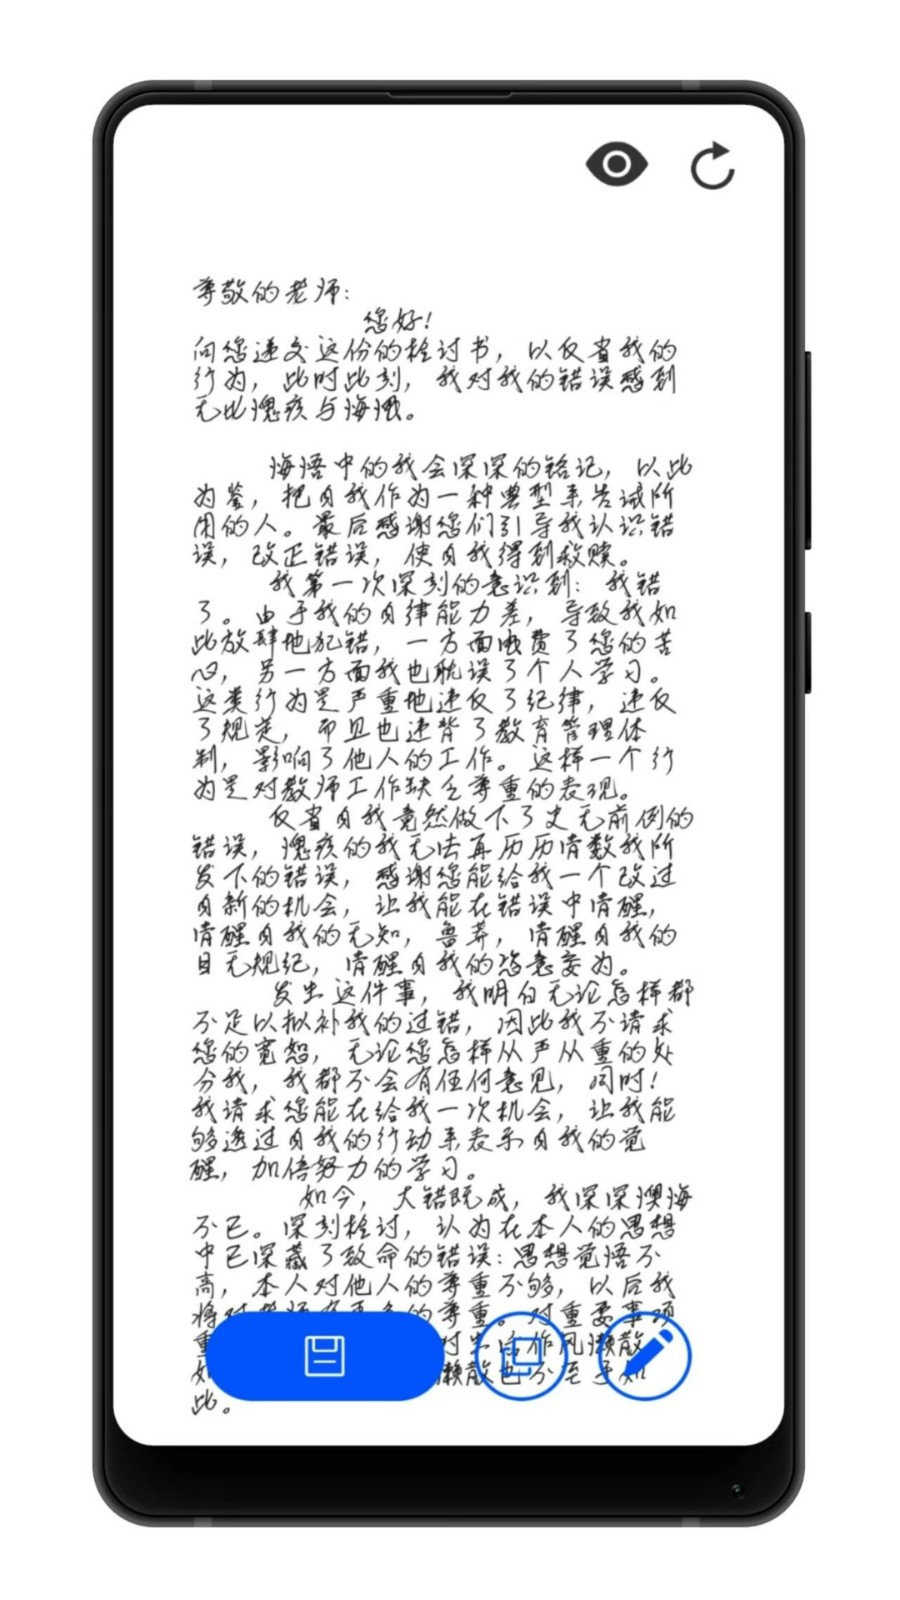 尊敬的老师:
您好!
向您递交这份的检讨书, 以反省我的
行为, 此时此刻, 我对我的错误感到
无比愧疚与悔恨。
悔悟中的我会深深的铭记, 以此
为鉴, 把自我作为一种典型来告诫所
用的人。最后感谢您们引导我认识错
误, 改正错误, 使自我得到救赎。
我第一次深刻的意识到: 我错
了。由于我的自律能力差, 导致我如
此放肆地犯错, 一方面浪费了您的苦
心, 另一方面我也耽误了个人学习。
这类行为是严重地违反了纪律, 违反
了规定, 而且也违背了教育管理体
制, 影响了他人的工作。这样一个行
为是对教师工作缺乏尊重的表现。
反省自我竟然做下了史无前例的
错误, 愧疚的我无法再历历清数我所
发下的错误, 感谢您能给我一个改过
自新的机会, 让我能在错误中清醒,
清醒自我的无知, 鲁莽, 清醒自我的
目无规纪, 清醒自我的恣意妄为。
发生这件事, 我明白无论怎样都
不足以拟补我的过错, 因此我不请求
您的宽恕, 无论您怎样从严从重的处
分我, 我都不会有任何意见, 同时!
我请求您能在给我一次机会, 让我能
够透过自我的行动来表示自我的觉
醒, 加倍努力的学习。
如今, 大错既成, 我深深懊悔
不已。深刻检讨, 认为在本人的思想
中已深藏了致命的错误: 思想觉悟不
高, 本人对他人的尊重不够, 以后我
将对老师有更多的尊重。对重要事项
重 对生活作风懒散
如 懒散也不至于如
此。